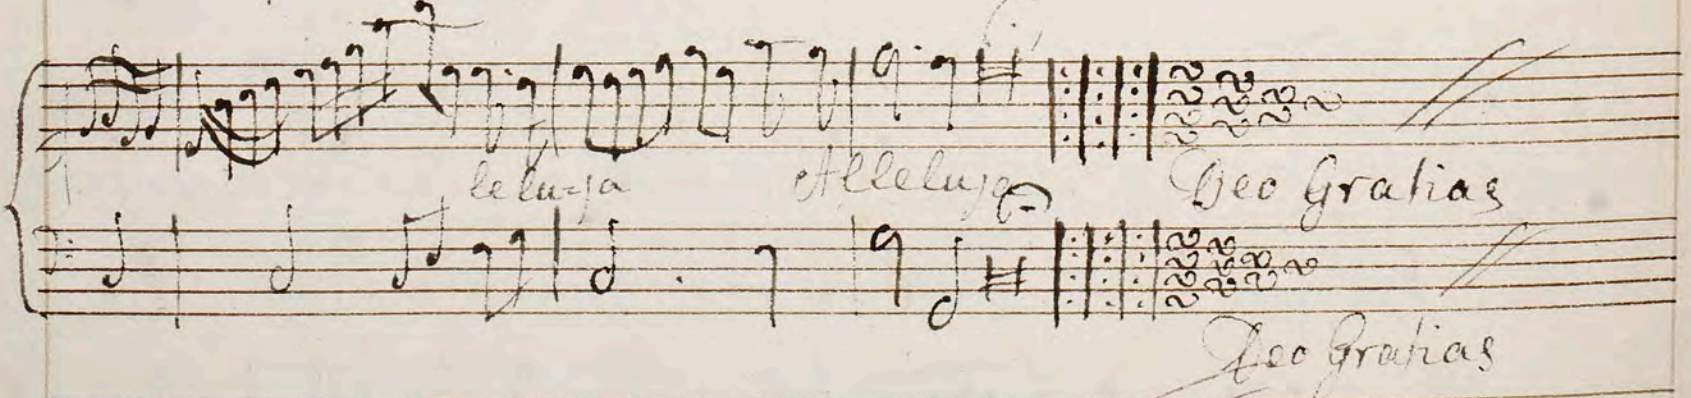 leluja Alleluja Deo Gratias
Deo Gratias